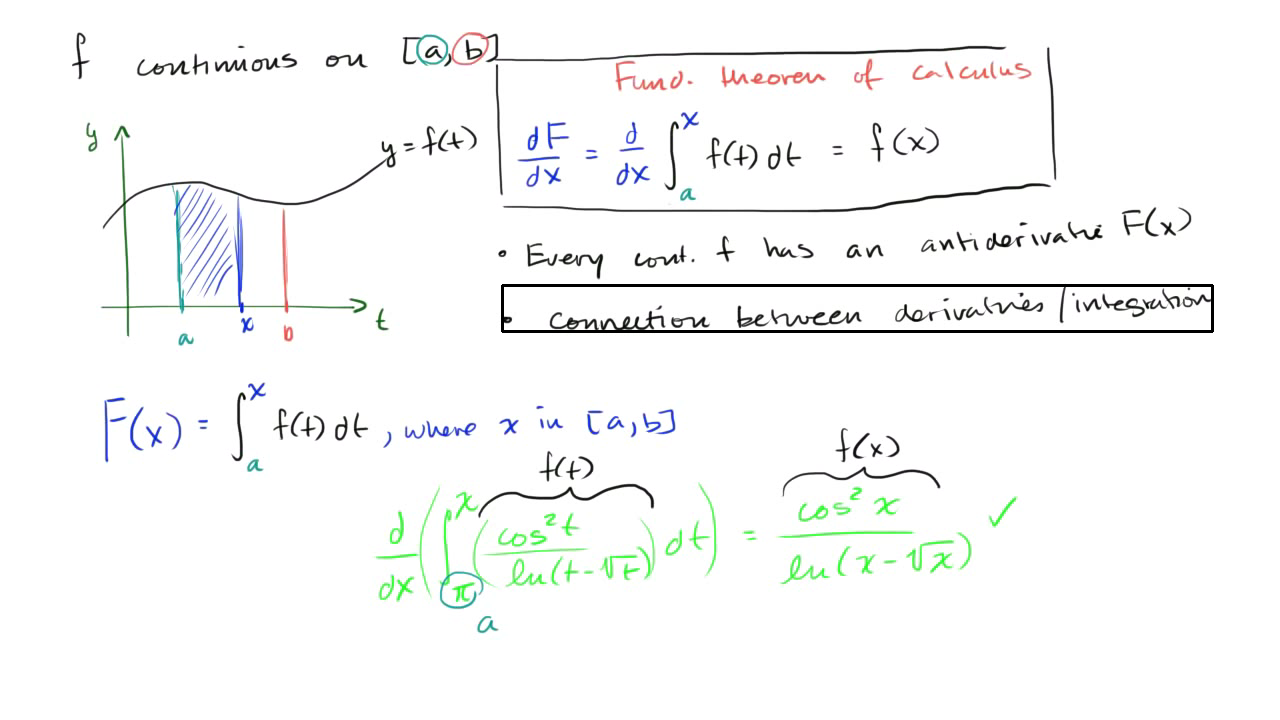 f continuous on [a, b]
Fund. theorem of calculus
dF/dx = d/dx ∫_a^x f(t) dt = f(x)
y
y = f(t)
a x b t
• Every cont. f has an antiderivative F(x)
• connection between derivatives / integration
F(x) = ∫_a^x f(t) dt, where x in [a, b]
f(t) f(x)
d/dx (∫_π^x (cos²t / ln(t-√t)) dt) = cos²x / ln(x-√x) ✓
a